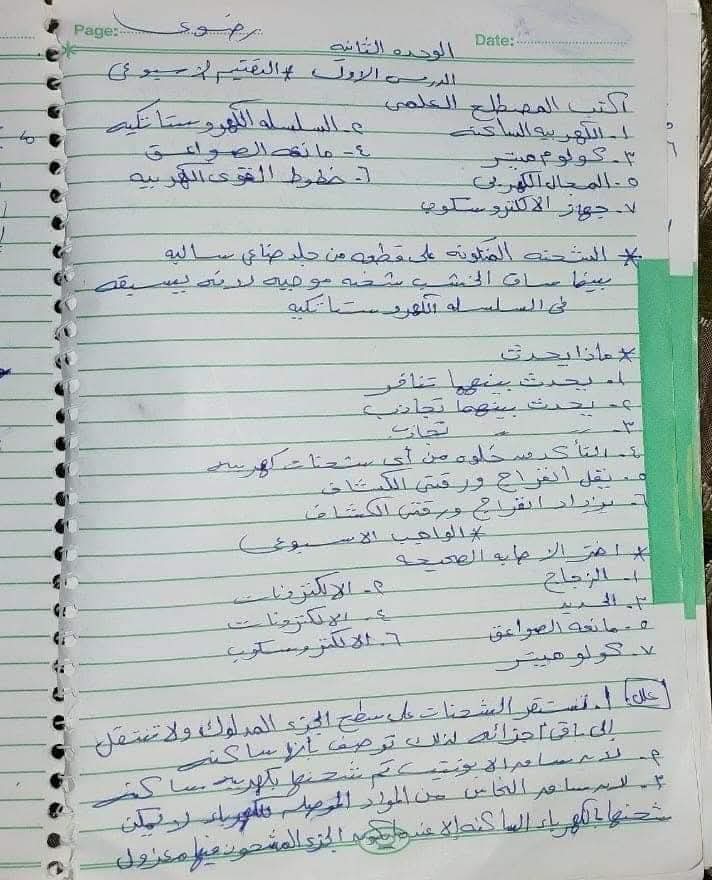 Page: رضوى
Date:
الوحده الثانيه
الدرس الاول * التقييم الاسبوعى
اكتب المصطلح العلمى
١- الكهربيه الساكنه ٢- السلسله الكهروستاتيكيه
٣- كولوم ميتر ٤- مانعه الصواعق
٥- المجال الكهربى ٦- خطوط القوى الكهربيه
٧- جهاز الالكتروسكوب
* الشحنه المتكونه على قطعه من جلد صناعى سالبه
بينما ساق الخشب شحنه موجبه لانه يسبقه
فى السلسله الكهروستاتيكيه
* ماذا يحدث
١- يحدث بينهما تنافر
٢- يحدث بينهما تجاذب
٣- " " تجاذب
٤- التأكد من خلوه من أى شحنات كهربيه
٥- يقل انفراج ورقتى الكشاف
٦- يزداد انفراج ورقتى الكشاف
* الواجب الاسبوعى
* اختر الاجابه الصحيحه
١- الزجاج ٢- الالكترونات
٣- الحديد ٤- الالكترونات
٥- مانعه الصواعق ٦- الالكتروسكوب
٧- كولوميتر
علل ١- تستقر الشحنات على سطح الجزء المدلوك ولا تنتقل
إلى باقى اجزائه لذلك توصف بأنها ساكنه
٢- لان ساق الابونيت تم شحنها بكهربيه ساكنه
٣- لان ساق النحاس من المواد الموصله للكهرباء لا يمكن
شحنها بالكهرباء الساكنه إلا عند الجزء المشحون فيها معزول